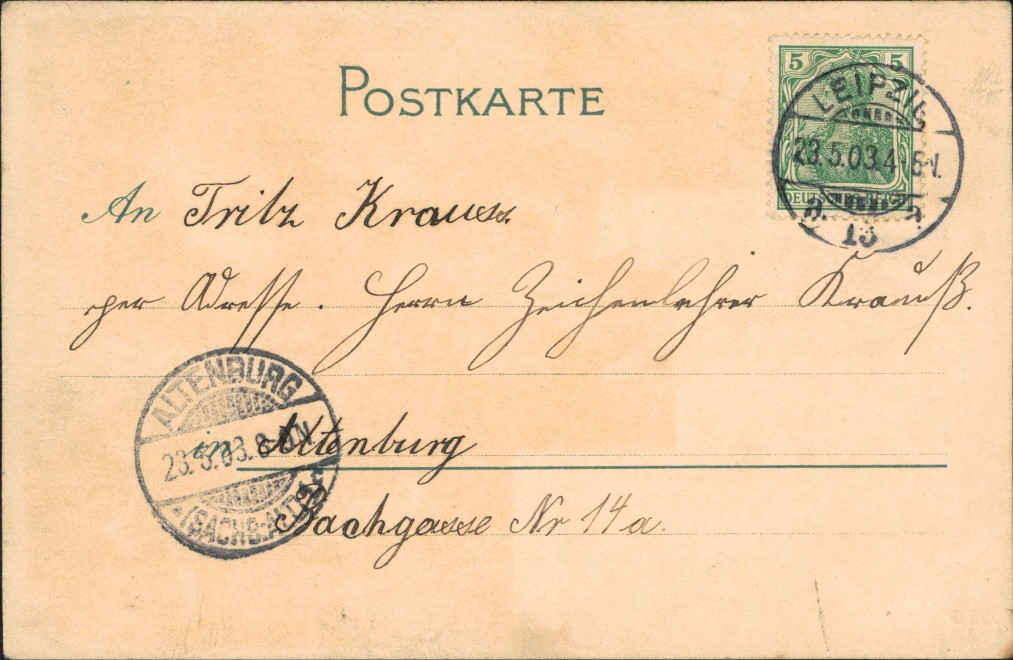 POSTKARTE
5 5
LEIPZIG
23.5.03.4-5N.
13
An Fritz Krauss.
per Adresse. Herrn Zeichenlehrer Krauß.
ALTENBURG
23.5.03.8-9N
(SACHS:ALT)
in Altenburg
Nr 14a.